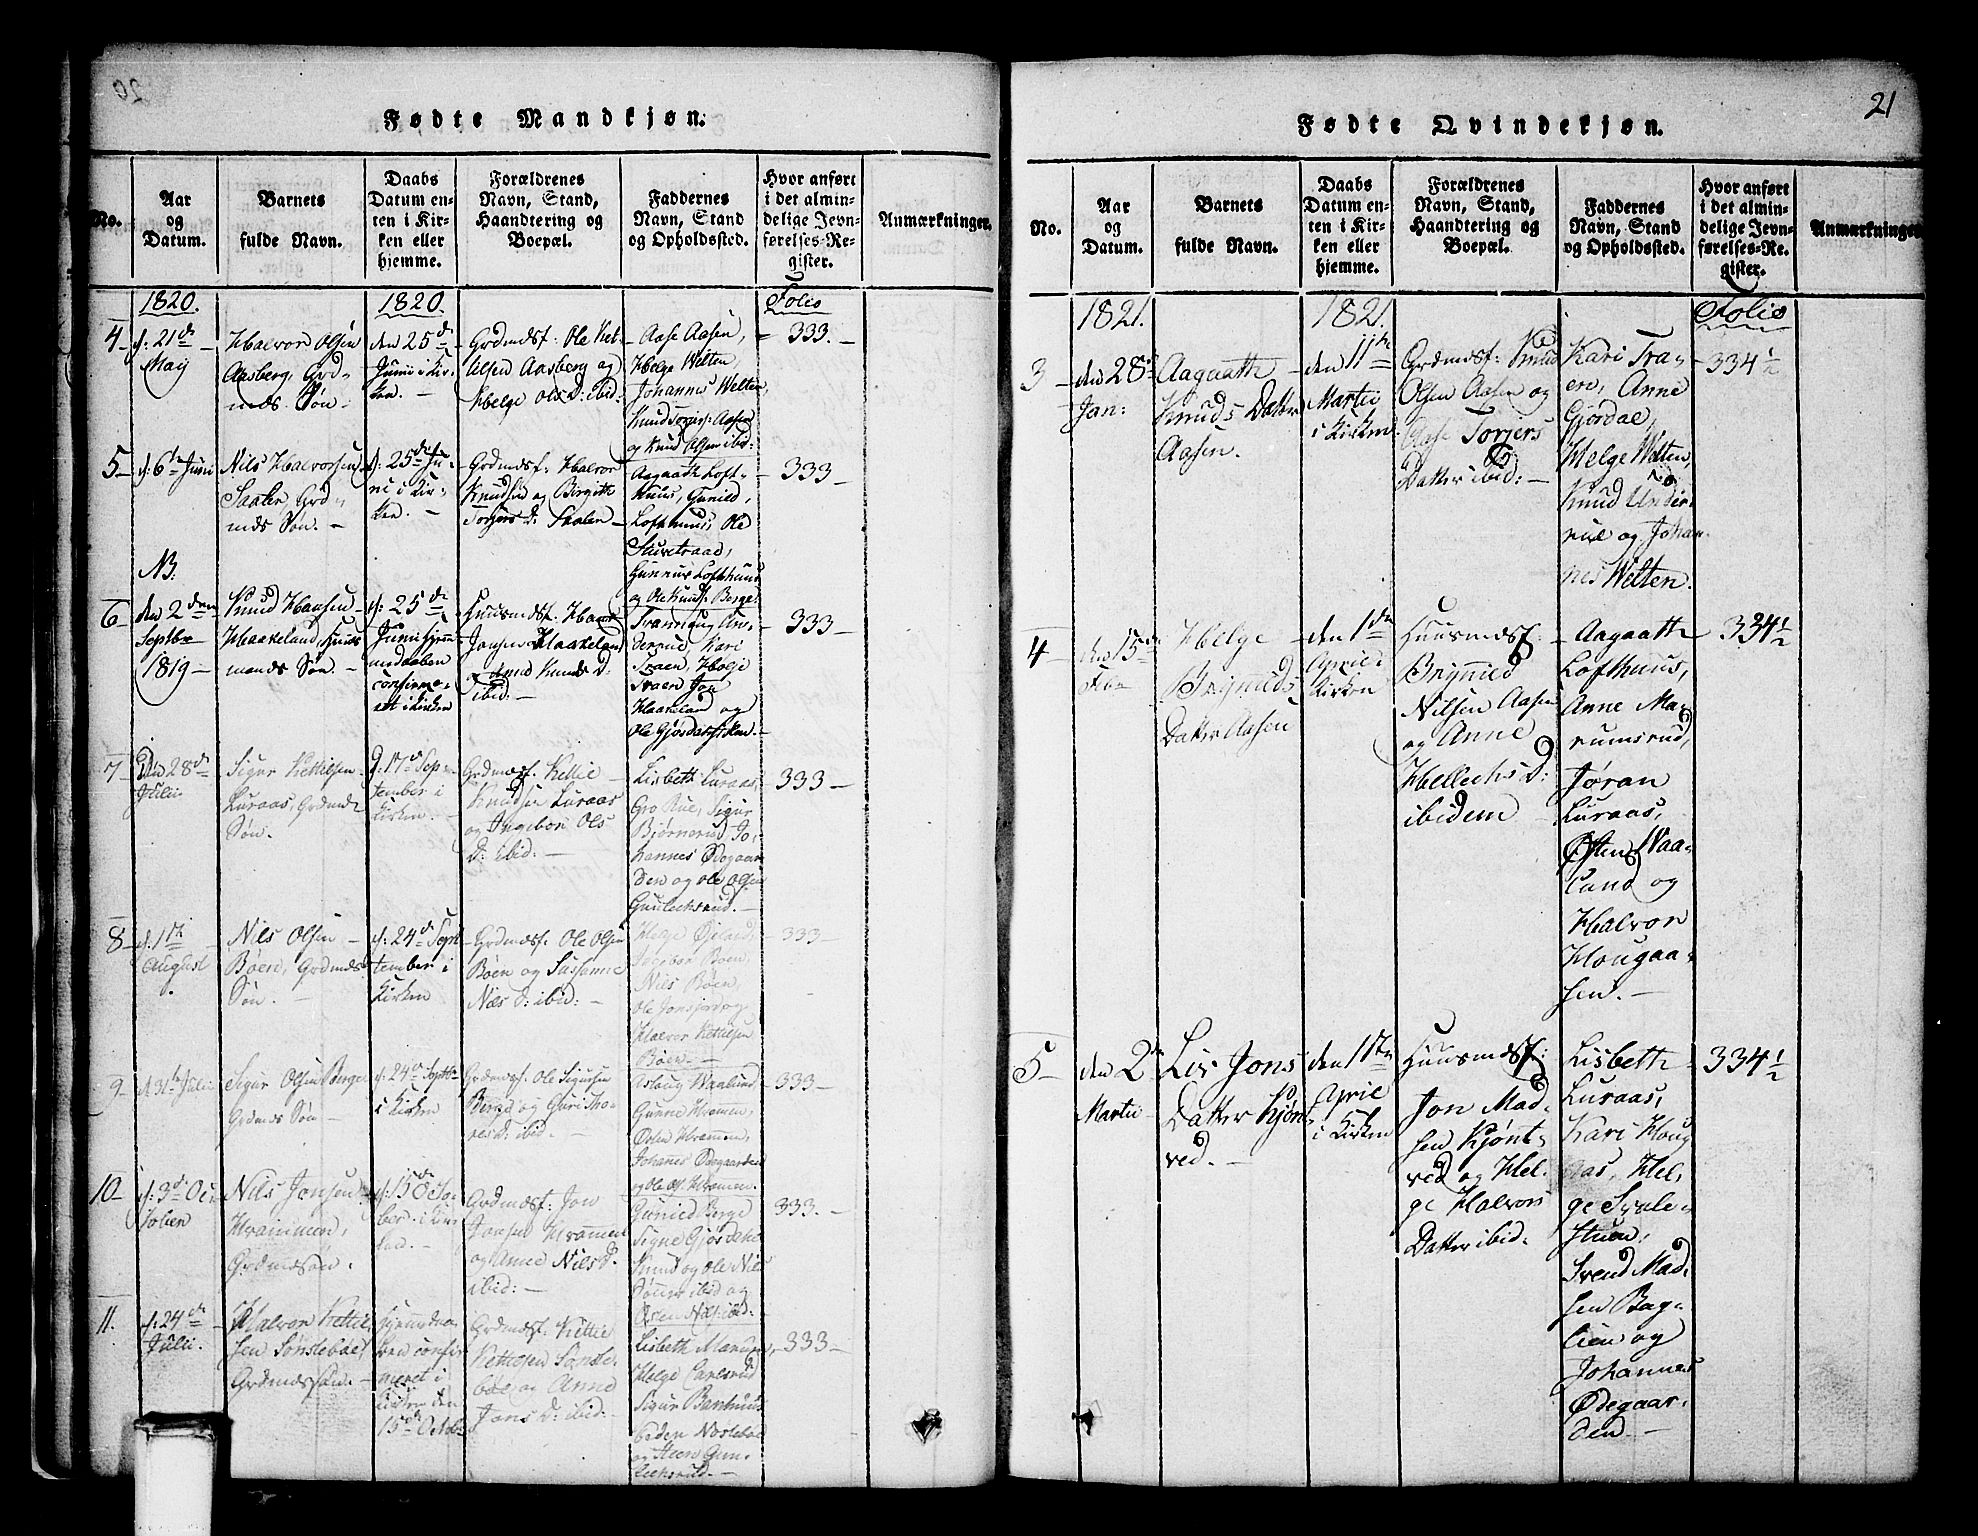 Fødte Mandkjøn.
No.
Aar
og
Datum.
Barnets
fulde Navn.
Daabs
Datum en-
ten i Kir-
ken eller
hjemme.
Forældrenes
Navn, Stand,
Haandtering og
Boepæl.
Faddernes
Navn, Stand
og Opholdssted.
Hvor anført
i det almin-
delige Jevn-
førelses-Re-
gister.
Anmærkninger.
1820.
1820.
Folio
4
d: 21de
Maij
Halvor Olsen
Aasberg, Grd-
mds. Søn
den 25de
Junii i Kir-
ken.
Grdmdsf. Ole Ket-
elsen Aasberg og
Helge Ols D: ibid:
Aase Aasen,
Helge Welten
Johannes Welten,
Knud Torjus: Aasen
og Knud Olsen ibid:
333.
5
d: 6te Junii
Nils Halvorsen
Saalen Grd-
mds Søn.
d: 25de Ju-
nii i Kir-
ken.
Grdmdsf: Halvor
Knudsen og Birgitte
Torjers D: Saalen
Aagaath Loft-
huus, Gunild
Lofthuus, Ole
Gunnur Lofthuus
og Ole Knuds: Berge
333
NB.
6
den 2den
Septbr
1819
Knud Hansen
Haakeland, Huus
mands Søn.
d: 25de
Junii hjem-
medaaben
confirme-
ret i Kirken
Huusmdsf. Hans
Jonsen Haakeland
og Anne Knuds D:
ibid:
Kari
Traen, Helje
Traen Jon
Haakeland og
333
7
Den 28de
Julii
Sigur Kettilsen
Luraas, Grdmds
Søn.
d. 17de Sep-
tember i
Kirken.
Grdmdsf. Kettil
Knudsen Luraas
og Ingebor Ols
D: ibid:
Lisbeth Luraas,
Gro Rue, Sigur
Bjørnerud Jo-
hannes Ødegaar-
den og Ole Olsen
Gulleksrud.
333
8
d: 1ste
August
Nils Olsen
Bøen, Grdmds
Søn.
d: 24de Sept
tember i
Kirken
Grdmdsf. Ole Olsen
Bøen og Sussanne
Nils D: ibid:
Helge Øiland,
Ingebor Boen,
Nils Bøen,
Halvor Kettilsen
Bøen.
333
9
d. 31te Julii
Sigur Olsen Berge
Grdmds Søn
d: 24de Septbr
i Kirken
Grdmdsf. Ole Sigursen
Berge og Guri Tho-
res D: ibid.
Aslaug Waalund
Gunne Hvammen,
Johannes Ødegaarden
333
10
d: 3de Oc-
tober
Nils Jonsen
Hvammen,
Grdmdssøn.
Grdmdsf: Jon
Jonsen Hvammen
og Anne Nils D.
ibid:
Gunild Berge
Signe Gjørdahl
Knud og Ole Nils
Sønner ibid og
333.
11.
d. 24de
Julii.
Halvor Kettil-
sen Sønslebøe,
Grdmdssøn.
hjemmedaa-
ben confir-
meret i
Kirken den
15de Octobr
Grdmdsf. Kettil
Kettilsen Sønsle-
bøe og Anne
Jons D: ibid:
Lisbeth Marum,
Helge Carlsrud
Sigur Bakhuus
333
21
Fødte Qvindekjøn.
No.
Aar
og
Datum.
Barnets
fulde Navn.
Daabs
Datum en-
ten i Kir-
ken eller
hjemme.
Forældrenes
Navn, Stand,
Haandtering og
Boepæl.
Faddernes
Navn, Stand
og Opholdssted.
Hvor anført
i det almin-
delige Jevn-
førelses-Re-
gister.
Anmærkninger
1821.
1821.
Folio
3
den 28de
Jan:
Aagaath
Knuds Datter
Aasen.
den 11te
Martii
i Kirken
Grdmdsf: Knud
Olsen Aasen og
Aase Torjers
Datter ibid:
Kari Tra-
en, Anne
Gjørdal,
Helge Welten,
Knud Under-
rue og Johan-
nes Welten.
334 1/2
4
den 15de
Febr
Helge
Brynilds
Datter Aasen
den 1ste
April i
Kirken
Huusmdsf.
Brynild
Nilsen Aasen
og Anne
Hellechs D:
ibidem
Aagaath
Lofthuus,
Anne Ma-
rumsrud,
Jøran
Luraas,
Østen Waa-
lund og
Halvor
Hougaa-
sen.
334 1/2
5
den 2den
Martii
Liv Jons
Datter Kjønt-
ved.
den 1ste
April
i Kirken
Huusmdsf:
Jon Mad-
sen Kjønt-
ved og Hel-
ge Halvors
Datter ibid:
Lisbeth
Luraas,
Kari Houg
aas, Hel-
ge Syle-
stuen,
Svend Mad-
sen Bag-
lien og
Johannes
Ødegaar-
den.
334 1/2